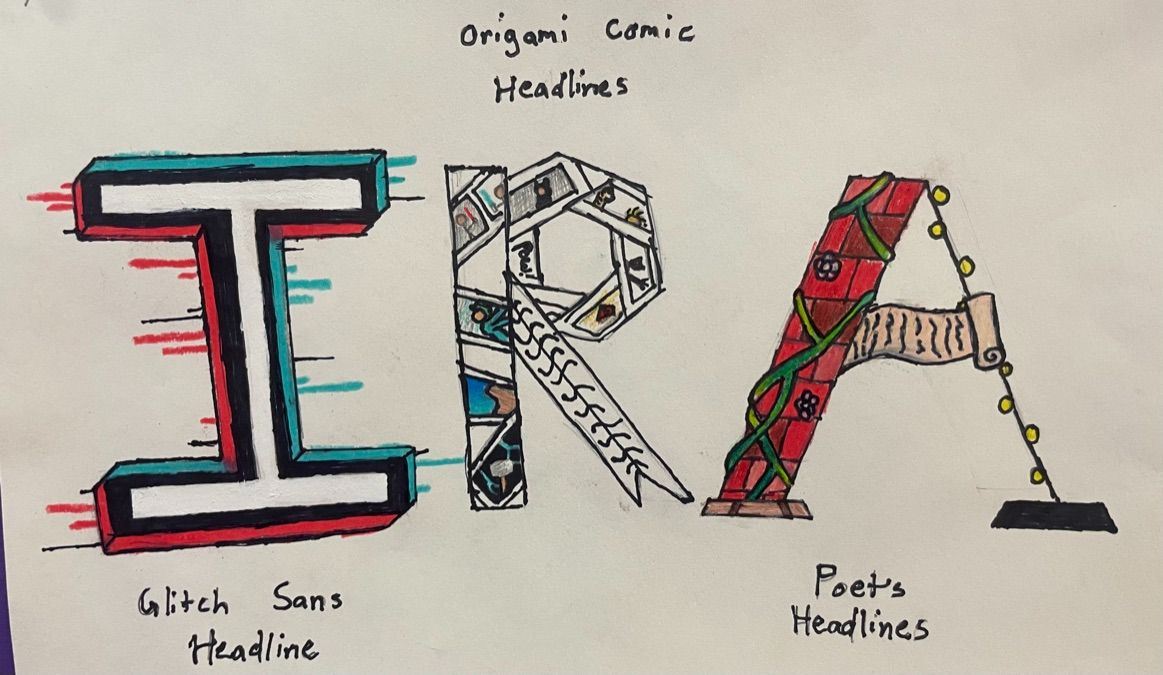 Origami Comic
Headlines
IRA
Pow!
Glitch Sans
Headline
Poet's
Headlines